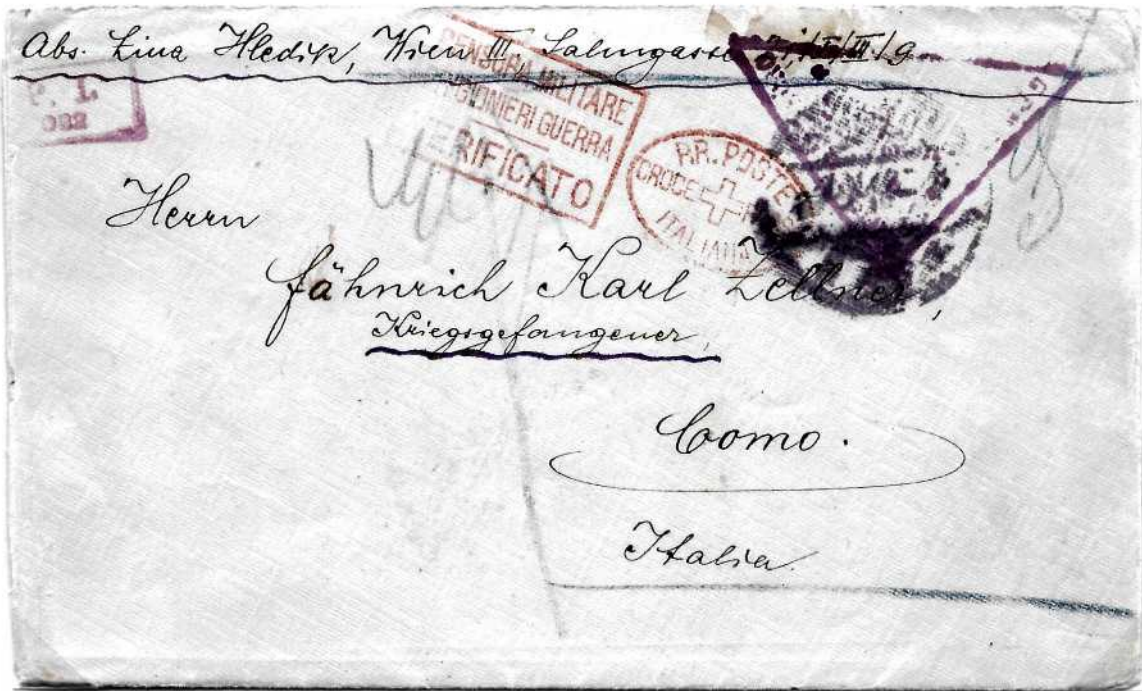 Abs. Lina Hledik, Wien III. Salmgasse
P. I.
082
CENSURA MILITARE
PRIGIONIERI GUERRA
VERIFICATO
RR. POSTE
CROCE
ITALIANA
Herrn
Fähnrich Karl Zellner,
Kriegsgefangener,
Como.
Italia.